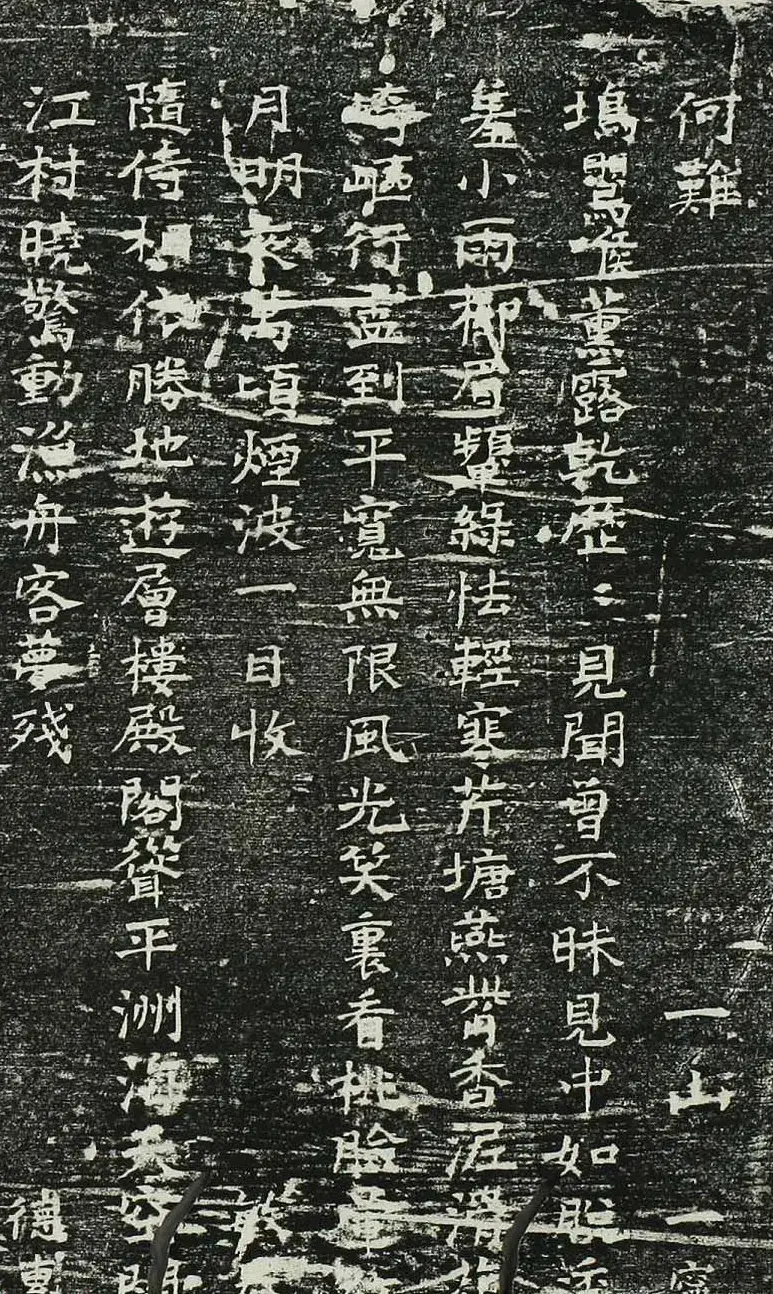 何難 一山 一寧
塢鶯簧薰露乾歷〻見聞曾不昧見中如
羞小雨柳眉顰綠怯輕寒芹塘燕觜香泥滿
崎嶇行盡到平寬無限風光笑裏看桃臉
月明夜萬頃煙波一目收
隨侍相依勝地遊層樓殿閣聳平洲海天空闊
江村曉驚動漁舟客夢殘 德